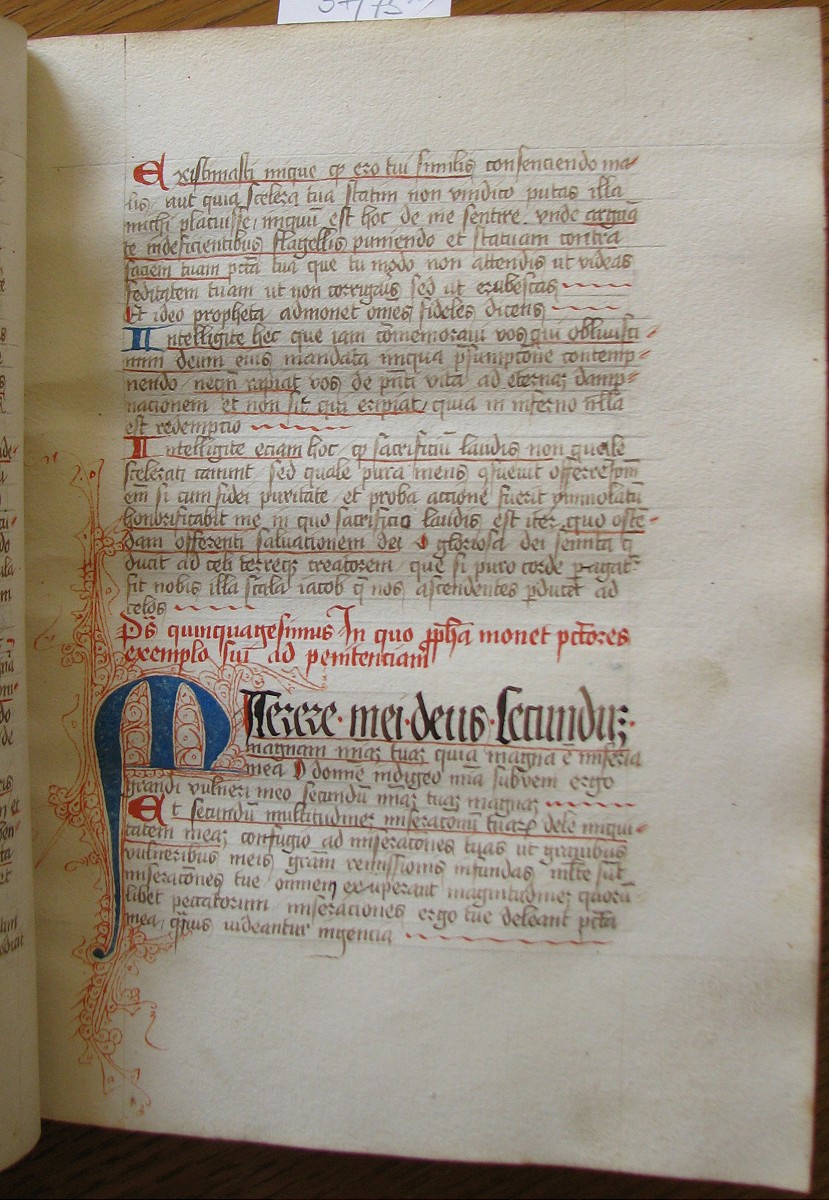 57/75
Existimasti inique ꝙ ero tui similis consenciendo ma-
lis, aut quia scelera tua statim non vindico putas illa
michi placuisse, iniquū est hoc de me sentire. vnde arguā
te indeficientibus flagellis puniendo et statuam contra
faciem tuam pctā tua que tu modo non attendis ut videas
feditatem tuam ut non corrigaris sed ut erubescas
Et ideo propheta admonet om̄es fideles dicens
Intelligite hec que iam cōmemoraui vos qui obliuisci-
mini deum eius mandata iniqua p̄sumptione contemp-
nendo, neqn̄ rapiat vos de pn̄ti vita ad eternaꝫ damp-
nacionem et non sit qui eripiat, quia in inferno nlla
est redempcio
Intelligite eciam hoc, ꝙ sacrificiū laudis non quale
scelerati canunt sed quale pura mens ꝯsueuit offerre
si cum fidei puritate, et proba accione fuerit ymmolatū
honorificabit me, in quo sacrificio laudis est iter, quo osten-
dam offerenti saluacionem dei O gloriosa dei semita q̄
ducit ad celi terreqꝫ creatorem, que si puro corde ꝑagatr̄
sit nobis illa scala iacob q̄ nos ascendentes ꝑducet ad
celos
Ps̄ quinquagesimus In quo ꝓphā monet pctōres
exemplo sui ad penitenciam
Miserere · mei · deus · secundū ·
magnam mīaꝫ tuaꝫ quia magna ē miseria
mea O domine indigeo mīa subveni ergo
grandi vulneri meo secundū mīaꝫ tuaꝫ magnaꝫ
Et secundū multitudineꝫ miseracōnū tuaꝝ dele iniqui-
tatem meaꝫ confugio ad miseracōnes tuas ut grauibus
vulneribus meis gr̄am remissionis infundas multe sūt
miseracōnes tue omnem exuperant magnitudineꝫ quorū-
libet peccatorum miseraciones ergo tue deleant pctā
mea, q̄uis videantur ingencia